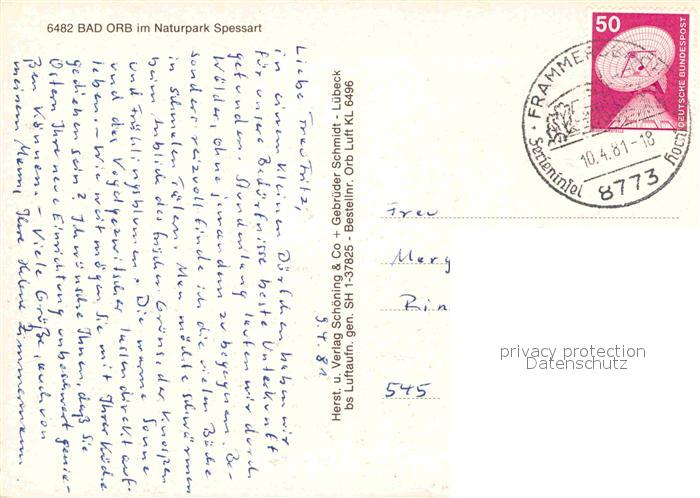 6482 BAD ORB im Naturpark Spessart
9.4.81
Liebe Frau Fritz,
in einem kleinen Dörfchen haben wir
für unsere Bedürfnisse beste Unterkunft
gefunden. Stundenlang laufen wir durch
Wälder, ohne jemandem zu begegnen. Be-
sonders reizvoll finde ich die vielen Bäche
in schmalen Tälern. Man möchte schwärmen
beim Anblick des frischen Grüns, der Knospen
und Frühlingsblumen. Die warme Sonne
und das Vogelgezwitscher lassen direkt auf-
leben. – Wie weit mögen Sie mit Ihrer Küche
gediehen sein? Ich wünsche Ihnen, daß Sie
Ostern Ihre neue Einrichtung unbeschwert genie-
ßen können. – Viele Grüße, auch von
meinem Mann, Ihre Helene Zimmermann.
Herst. u. Verlag Schöning & Co + Gebrüder Schmidt - Lübeck
bs Luftaufn. gen. SH 1-37825 - Bestellnr. Orb Luft KL 6496
50
DEUTSCHE BUNDESPOST
FRAMMER
10.4.81-18
Ferieninsel
8773
Frau
Marg
Rin
545
privacy protection
Datenschutz